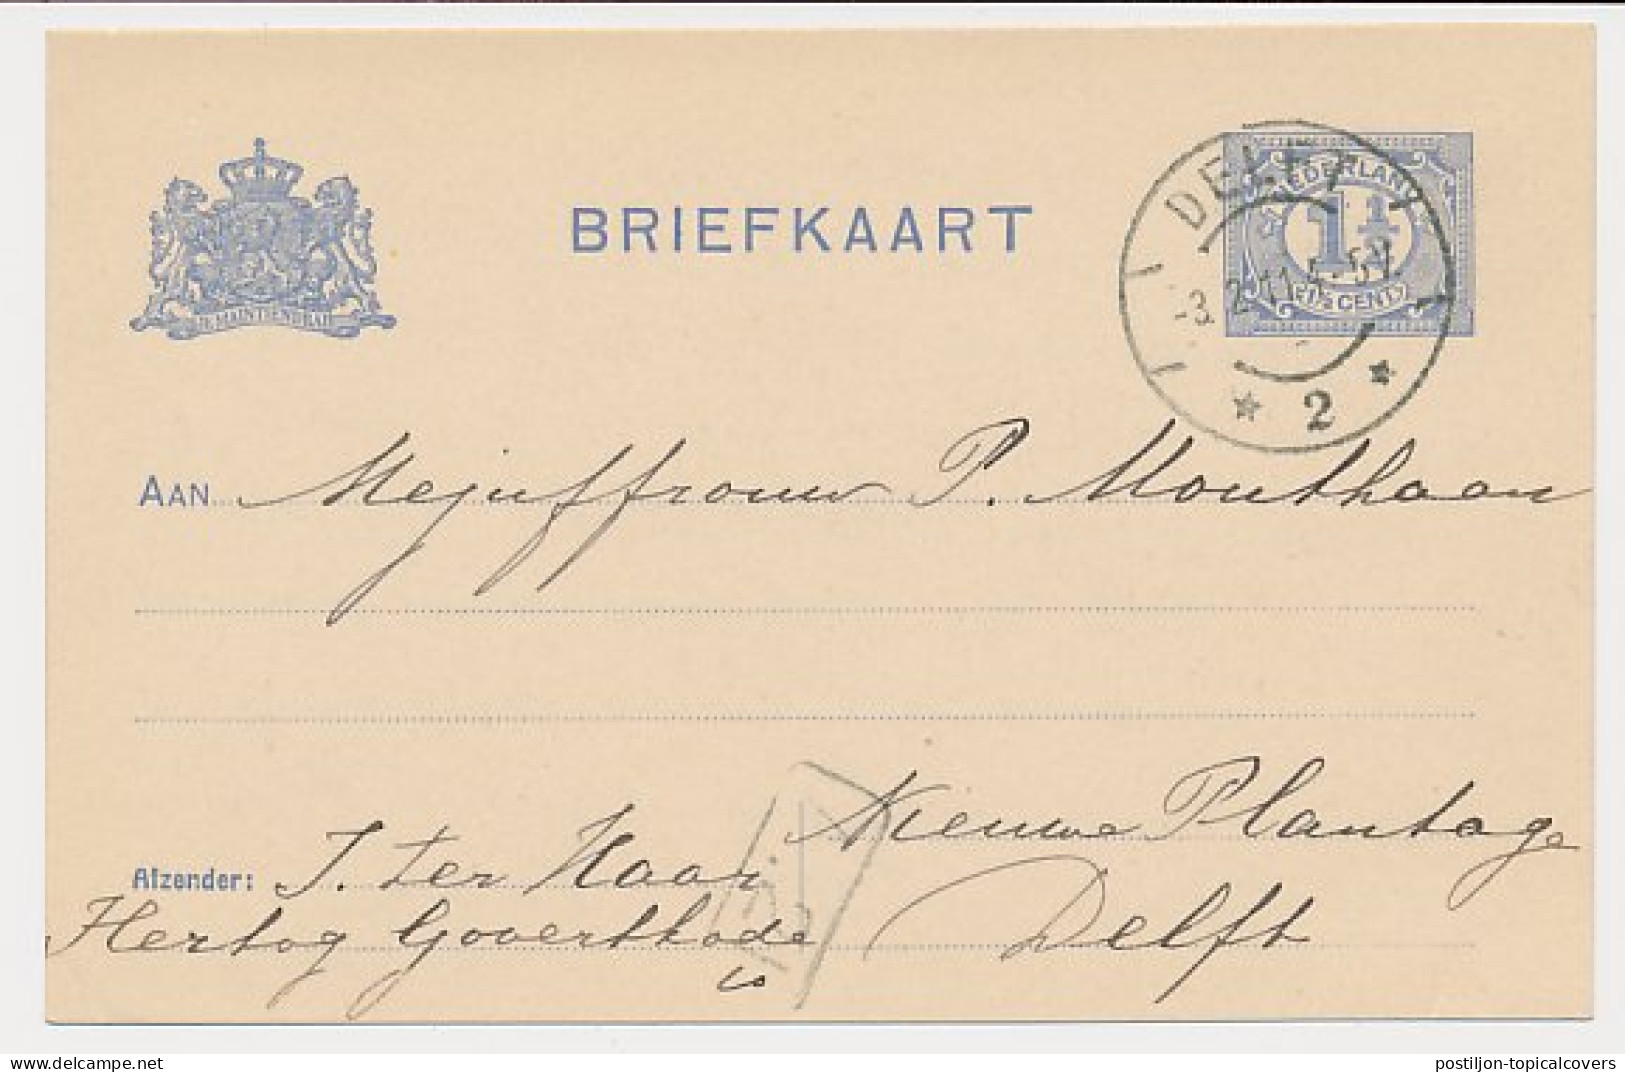 BRIEFKAART
NEDERLAND
1½
CENT
DELFT
-3.2.11 5-5V
2
JE MAINTIENDRAI
AAN Mejuffrouw P. Mouthaan
Nieuwe Plantage
Afzender: J. ter Haar
Hertog Govertkade
Delft
delcampe.net
postiljon-topicalcovers